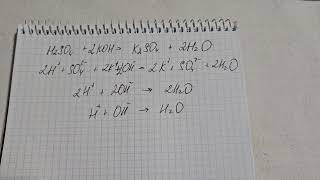 H₂SO₄ + 2KOH → K₂SO₄ + 2H₂O
2H⁺ + SO₄²⁻ + 2K⁺ + 2OH⁻ → 2K⁺ + SO₄²⁻ + 2H₂O
2H⁺ + 2OH⁻ → 2H₂O
H⁺ + OH⁻ → H₂O